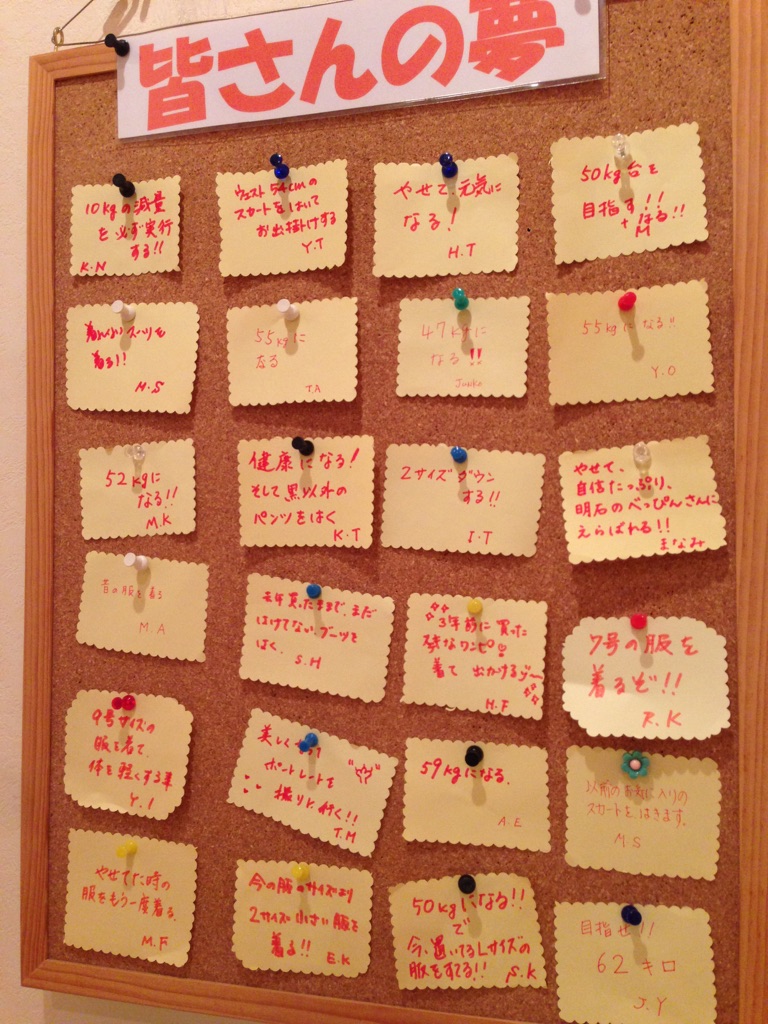 皆さんの夢
10kgの減量
を必ず実行
する!!
K.N
ウェスト54cmの
スカートをはいて
お出掛けする
Y.T
やせて元気に
なる!
H.T
50kg台を
目指す!!
M
着る!!
M.S
55kgに
なる
T.A
47kgに
なる!!
Junko
55kgになる!!
Y.O
52kgに
なる!!
M.K
健康になる!
そして黒以外の
パンツをはく
K.T
2サイズダウン
する!!
I.T
やせて、
自信たっぷり、
明石のべっぴんさんに
えらばれる!!
まなみ
昔の服を着る
M.A
去年買ったままで、まだ
はけてないブーツを
はく。
S.H
3年前に買った
ワンピ
着て出かけるゾ〜
M.F
7号の服を
着るぞ!!
R.K
9号サイズの
服を着て、
体を軽くする事
Y.I
美しくなって
ポートレートを
撮りに行く!!
T.M
59kgになる。
A.E
以前のお気に入りの
スカートをはきます。
M.S
やせてた時の
服をもう一度着る。
M.F
今の服のサイズより
2サイズ小さい服を
着る!!
E.K
50kgになる!!
で
今、置いてるLサイズの
服をすてる!!
S.K
目指せ!!
62キロ
J.Y